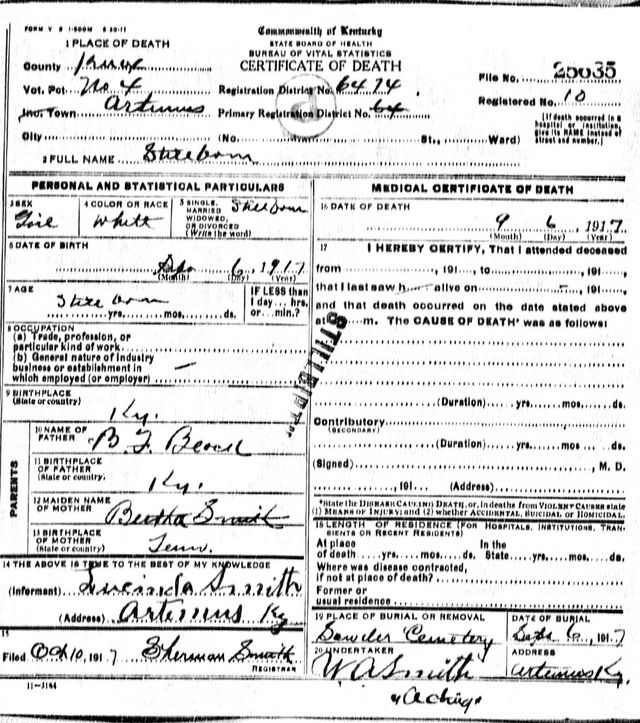 FORM V S 1-500M 5 20-11
Commonwealth of Kentucky
STATE BOARD OF HEALTH
BUREAU OF VITAL STATISTICS
CERTIFICATE OF DEATH
1 PLACE OF DEATH
County Knox
Vot. Pct. No. 4
Inc. Town Artemus
Registration District No. 6474
Primary Registration District No. 64
File No. 25035
Registered No. 10
City (No. St., Ward)
[If death occurred in a
hospital or institution,
give its NAME instead of
street and number.]
2 FULL NAME Stillborn
PERSONAL AND STATISTICAL PARTICULARS
3 SEX
Girl
4 COLOR OR RACE
White
5 SINGLE,
MARRIED
WIDOWED,
OR DIVORCED
(Write the word)
Stillborn
6 DATE OF BIRTH
Sep 6, 1917
(Month) (Day) (Year)
7 AGE
Still born
yrs. mos. ds.
IF LESS than
1 day... hrs.
or... min.?
8 OCCUPATION
(a) Trade, profession, or
particular kind of work
(b) General nature of industry
business or establishment in
which employed (or employer) —
9 BIRTHPLACE
(State or country)
Ky.
PARENTS
10 NAME OF
FATHER
B. F.
11 BIRTHPLACE
OF FATHER
(State or country)
Ky.
12 MAIDEN NAME
OF MOTHER
Bertha Smith
13 BIRTHPLACE
OF MOTHER
(State or country)
Tenn.
14 THE ABOVE IS TRUE TO THE BEST OF MY KNOWLEDGE
(Informant) Lucinda Smith
(Address) Artemus Ky
15
Filed Oct 10, 1917 Sherman Smith
REGISTRAR
11-3184
MEDICAL CERTIFICATE OF DEATH
16 DATE OF DEATH
9 6, 1917
(Month) (Day) (Year)
17 I HEREBY CERTIFY, That I attended deceased
from , 191 , to , 191 ,
that I last saw h alive on , 191 ,
and that death occurred on the date stated above
at m. The CAUSE OF DEATH* was as follows:
STILLBIRTH
(Duration) yrs. mos. ds.
Contributory
(SECONDARY)
(Duration) yrs. mos. ds.
(Signed) , M. D.
, 191 (Address)
*State the DISEASE CAUSING DEATH, or, in deaths from VIOLENT CAUSES state
(1) MEANS OF INJURY; and (2) whether ACCIDENTAL, SUICIDAL or HOMICIDAL.
18 LENGTH OF RESIDENCE (FOR HOSPITALS, INSTITUTIONS, TRAN-
SIENTS OR RECENT RESIDENTS)
At place
of death yrs. mos. ds.
In the
State yrs. mos. ds.
Where was disease contracted,
if not at place of death?
Former or
usual residence
19 PLACE OF BURIAL OR REMOVAL
Cemetery
DATE OF BURIAL
Sept 6, 1917
20 UNDERTAKER
W A Smith
ADDRESS
Artemus Ky.
"Acting"